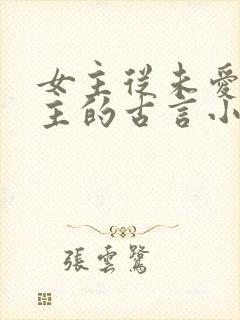 女主從未愛
主的古言小
張雲鷺